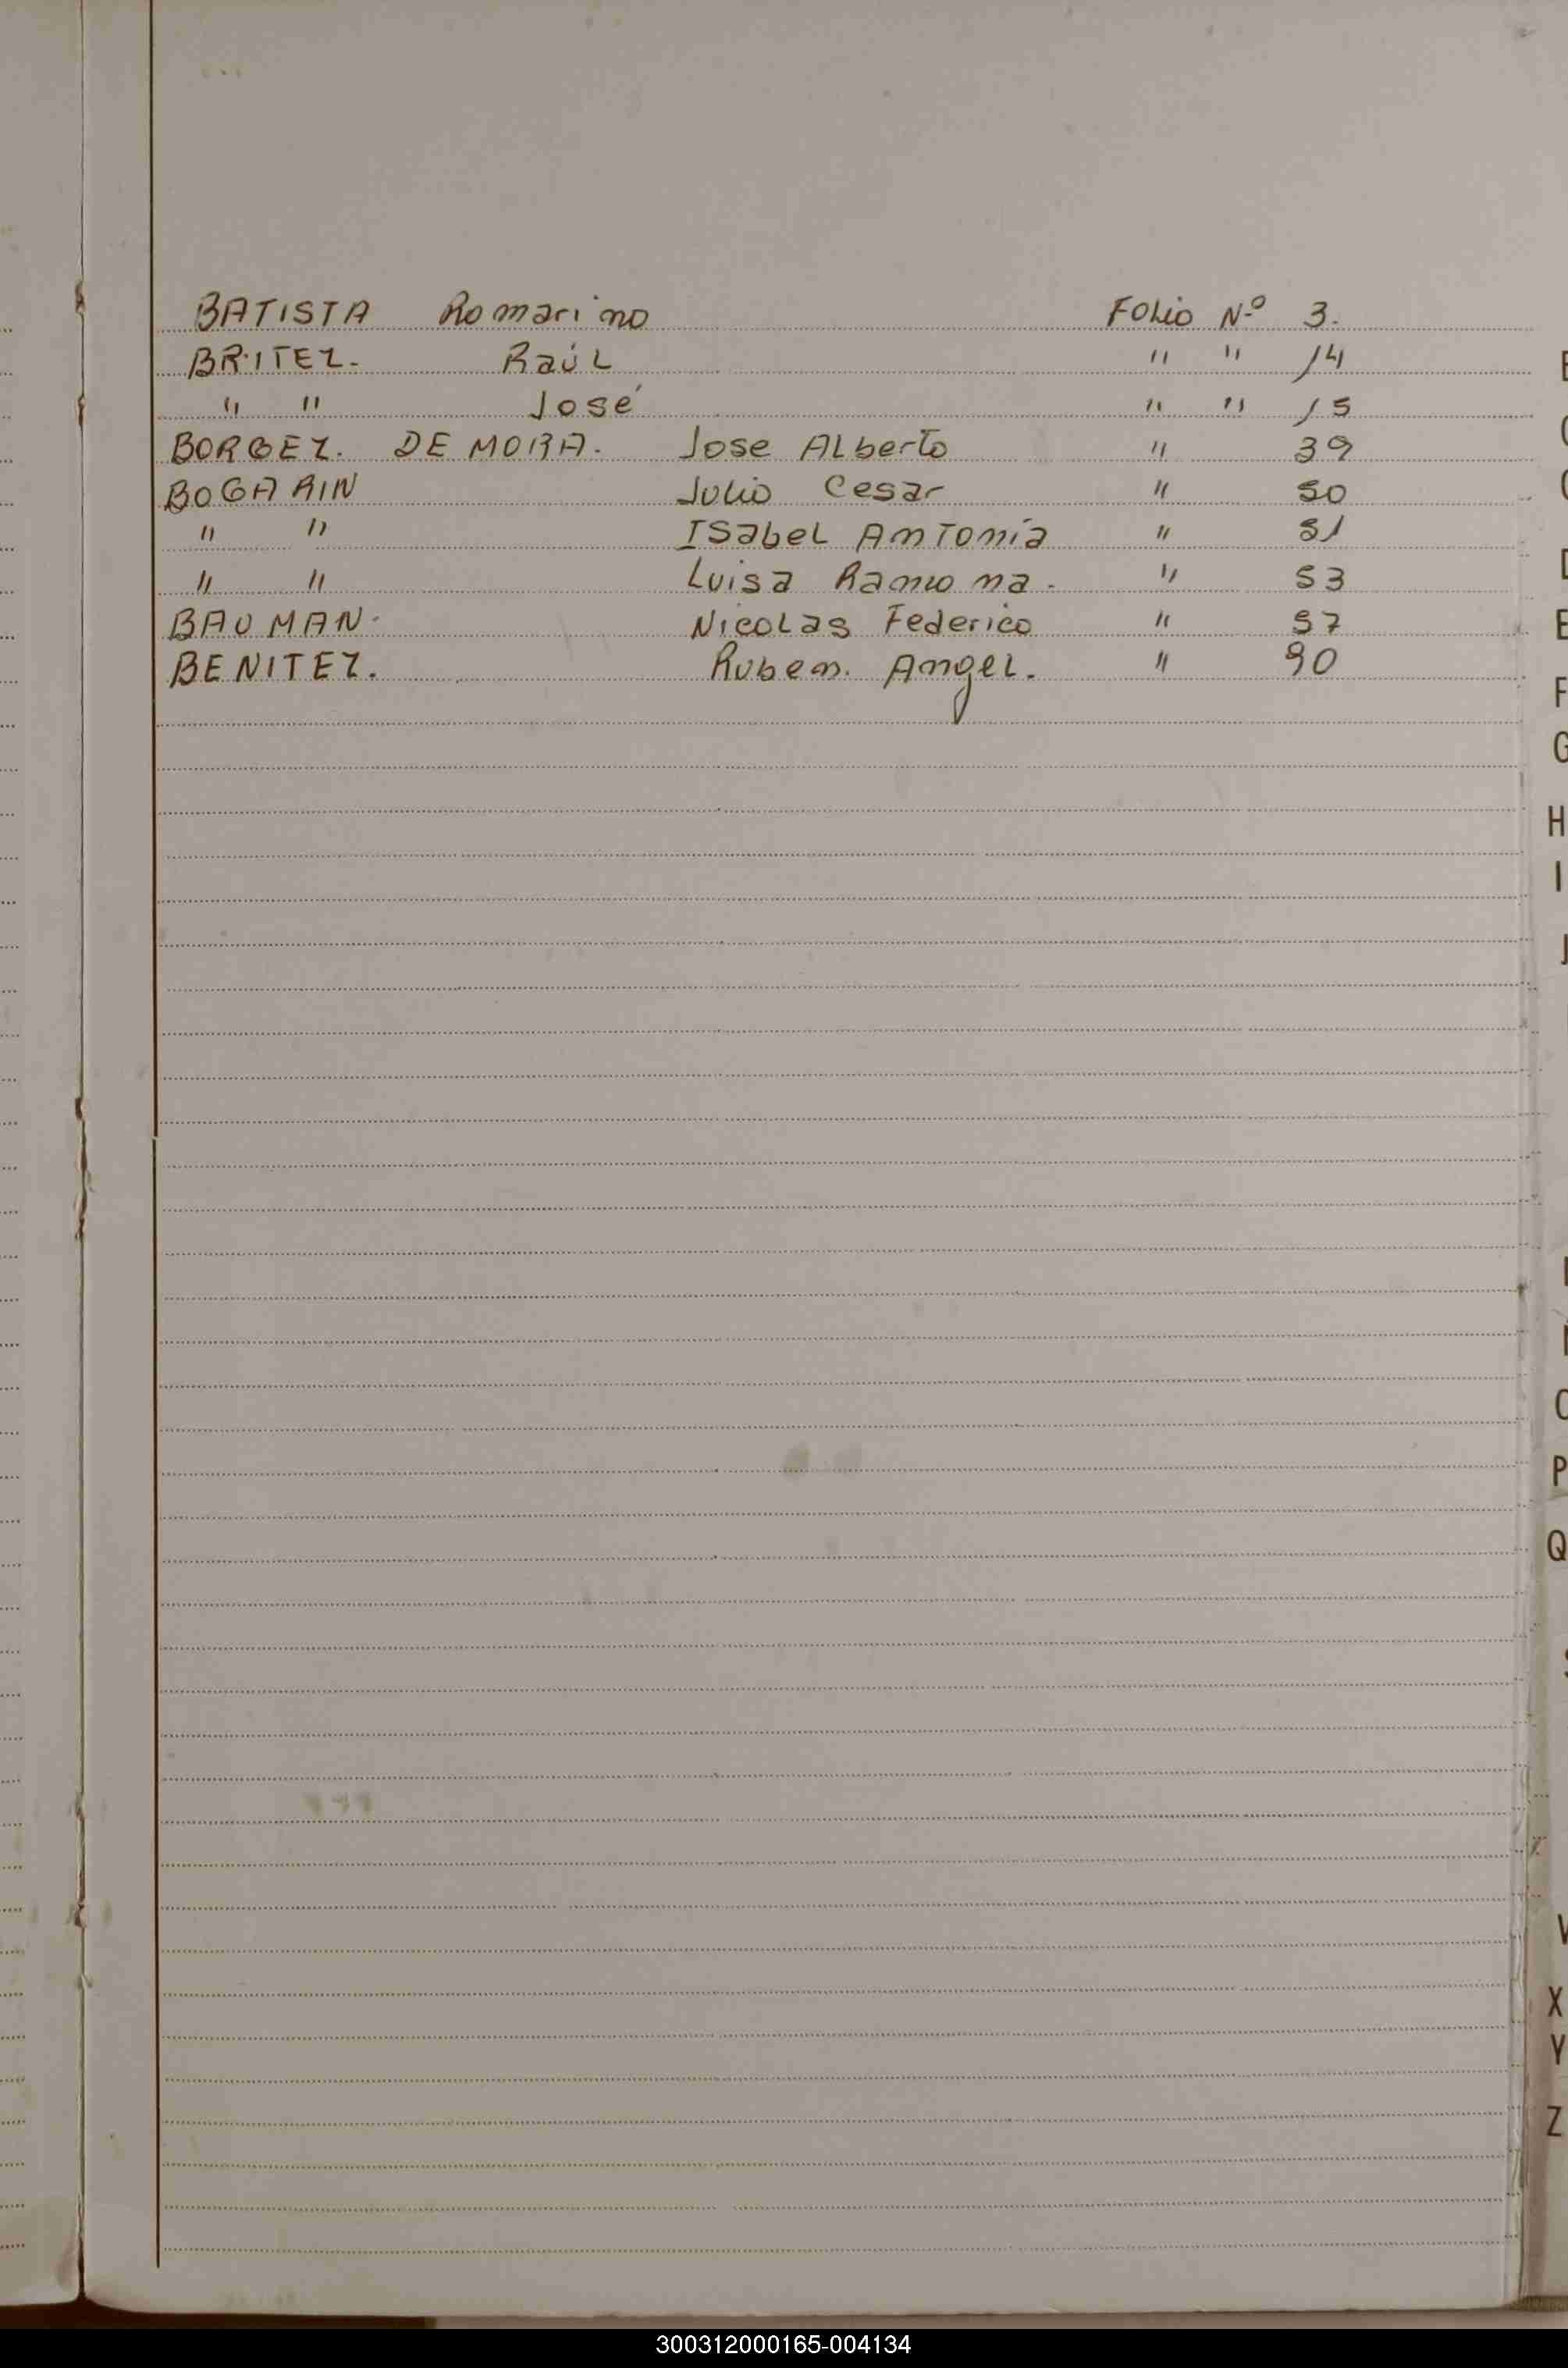 BATISTA Romarino Folio Nº 3.
BRITEZ. Raúl " " 14
" " José " " 15
BORGEZ. DE MORA. Jose Alberto " 39
BOGARIN Julio Cesar " 50
" " Isabel Antonía " 51
" " Luisa Ramona. " 53
BAUMAN. Nicolas Federico " 57
BENITEZ. Ruben. Angel. " 90
E
F
G
H
I
J
P
Q
X
Y
Z
300312000165-004134